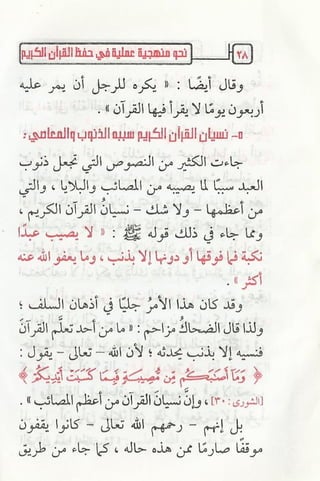 ٢٨
نحو منهجية عملية في حفظ القرآن الكريم
وقال أيضًا : « يكره للرجل أن يمر عليه
أربعون يومًا لا يقرأ فيها القرآن » .
٥- نسيان القرآن الكريم سببه الذنوب والمعاصي :
جاءت الكثير من النصوص التي تجعل ذنوب
العبد سببًا لما يصيبه من المصائب والبلايا ، والتي
من أعظمها – ولا شك – نسيانُ القرآن الكريم ،
ومما جاء في ذلك قوله ﷺ : « لا يصيب عبدًا
نكبة فما فوقها أو دونها إلا بذنب ، وما يغفو الله عنه
أكثر » .
وقد كان هذا الأمرُ جليًا في أذهان السلف ؛
ولذا قال الضحاكُ بن مزاحم : « ما من أحد تعلَّم القرآنَ
فنسيه إلا بذنب يحدثه ؛ لأن الله – تعالى – يقول :
﴿ وَمَا أَصَٰبَكُم مِّن مُّصِيبَةٍ فَبِمَا كَسَبَتْ أَيْدِيكُمْ ﴾
[الشورى : ٣٠] ، وإنَّ نسيانَ القرآن من أعظم المصائب » .
بل إنهم – رحمهم الله تعالى – كانوا يقفون
موقفًا صارمًا ممن هذه حاله ، كما جاء من طريق